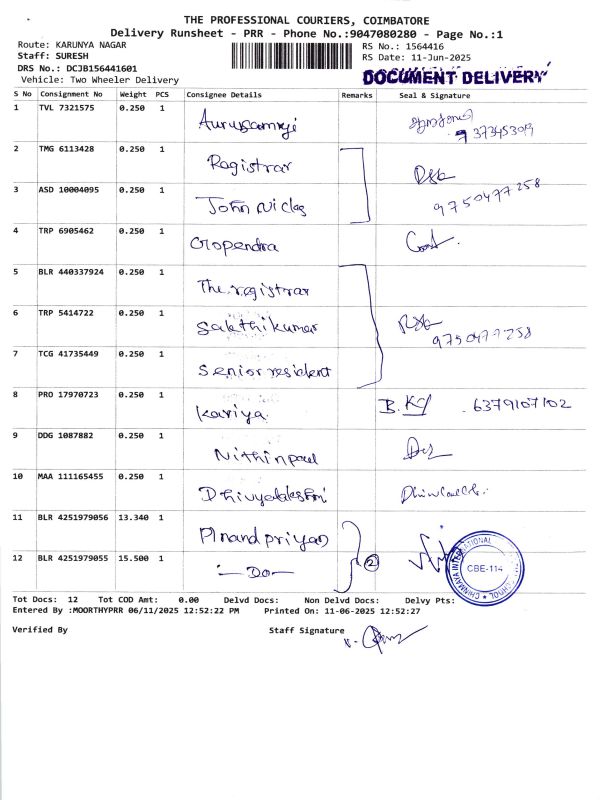 THE PROFESSIONAL COURIERS, COIMBATORE
Delivery Runsheet - PRR - Phone No.:9047080280 - Page No.:1
Route: KARUNYA NAGAR
Staff: SURESH
DRS No.: DCJB156441601
Vehicle: Two Wheeler Delivery
RS No.: 1564416
RS Date: 11-Jun-2025
DOCUMENT DELIVERY
S No Consignment No Weight PCS Consignee Details Remarks Seal & Signature
1 TVL 7321575 0.250 1
2 TMG 6113428 0.250 1 Registrar
3 ASD 10004095 0.250 1 John 9750477258
4 TRP 6905462 0.250 1 Gropendra
5 BLR 440337924 0.250 1 The registrar
6 TRP 5414722 0.250 1 Sakthikumar 9750477258
7 TCG 41735449 0.250 1 Senior resident
8 PRO 17970723 0.250 1 Kaviya. 6379107102
9 DDG 1087882 0.250 1 Nithinpaul
10 MAA 111165455 0.250 1
11 BLR 4251979056 13.340 1
12 BLR 4251979055 15.500 1 —Do— 2
CHINMAYA INTERNATIONAL
CBE-114
Tot Docs: 12 Tot COD Amt: 0.00 Delvd Docs: Non Delvd Docs: Delvy Pts:
Entered By :MOORTHYPRR 06/11/2025 12:52:22 PM Printed On: 11-06-2025 12:52:27
Verified By Staff Signature